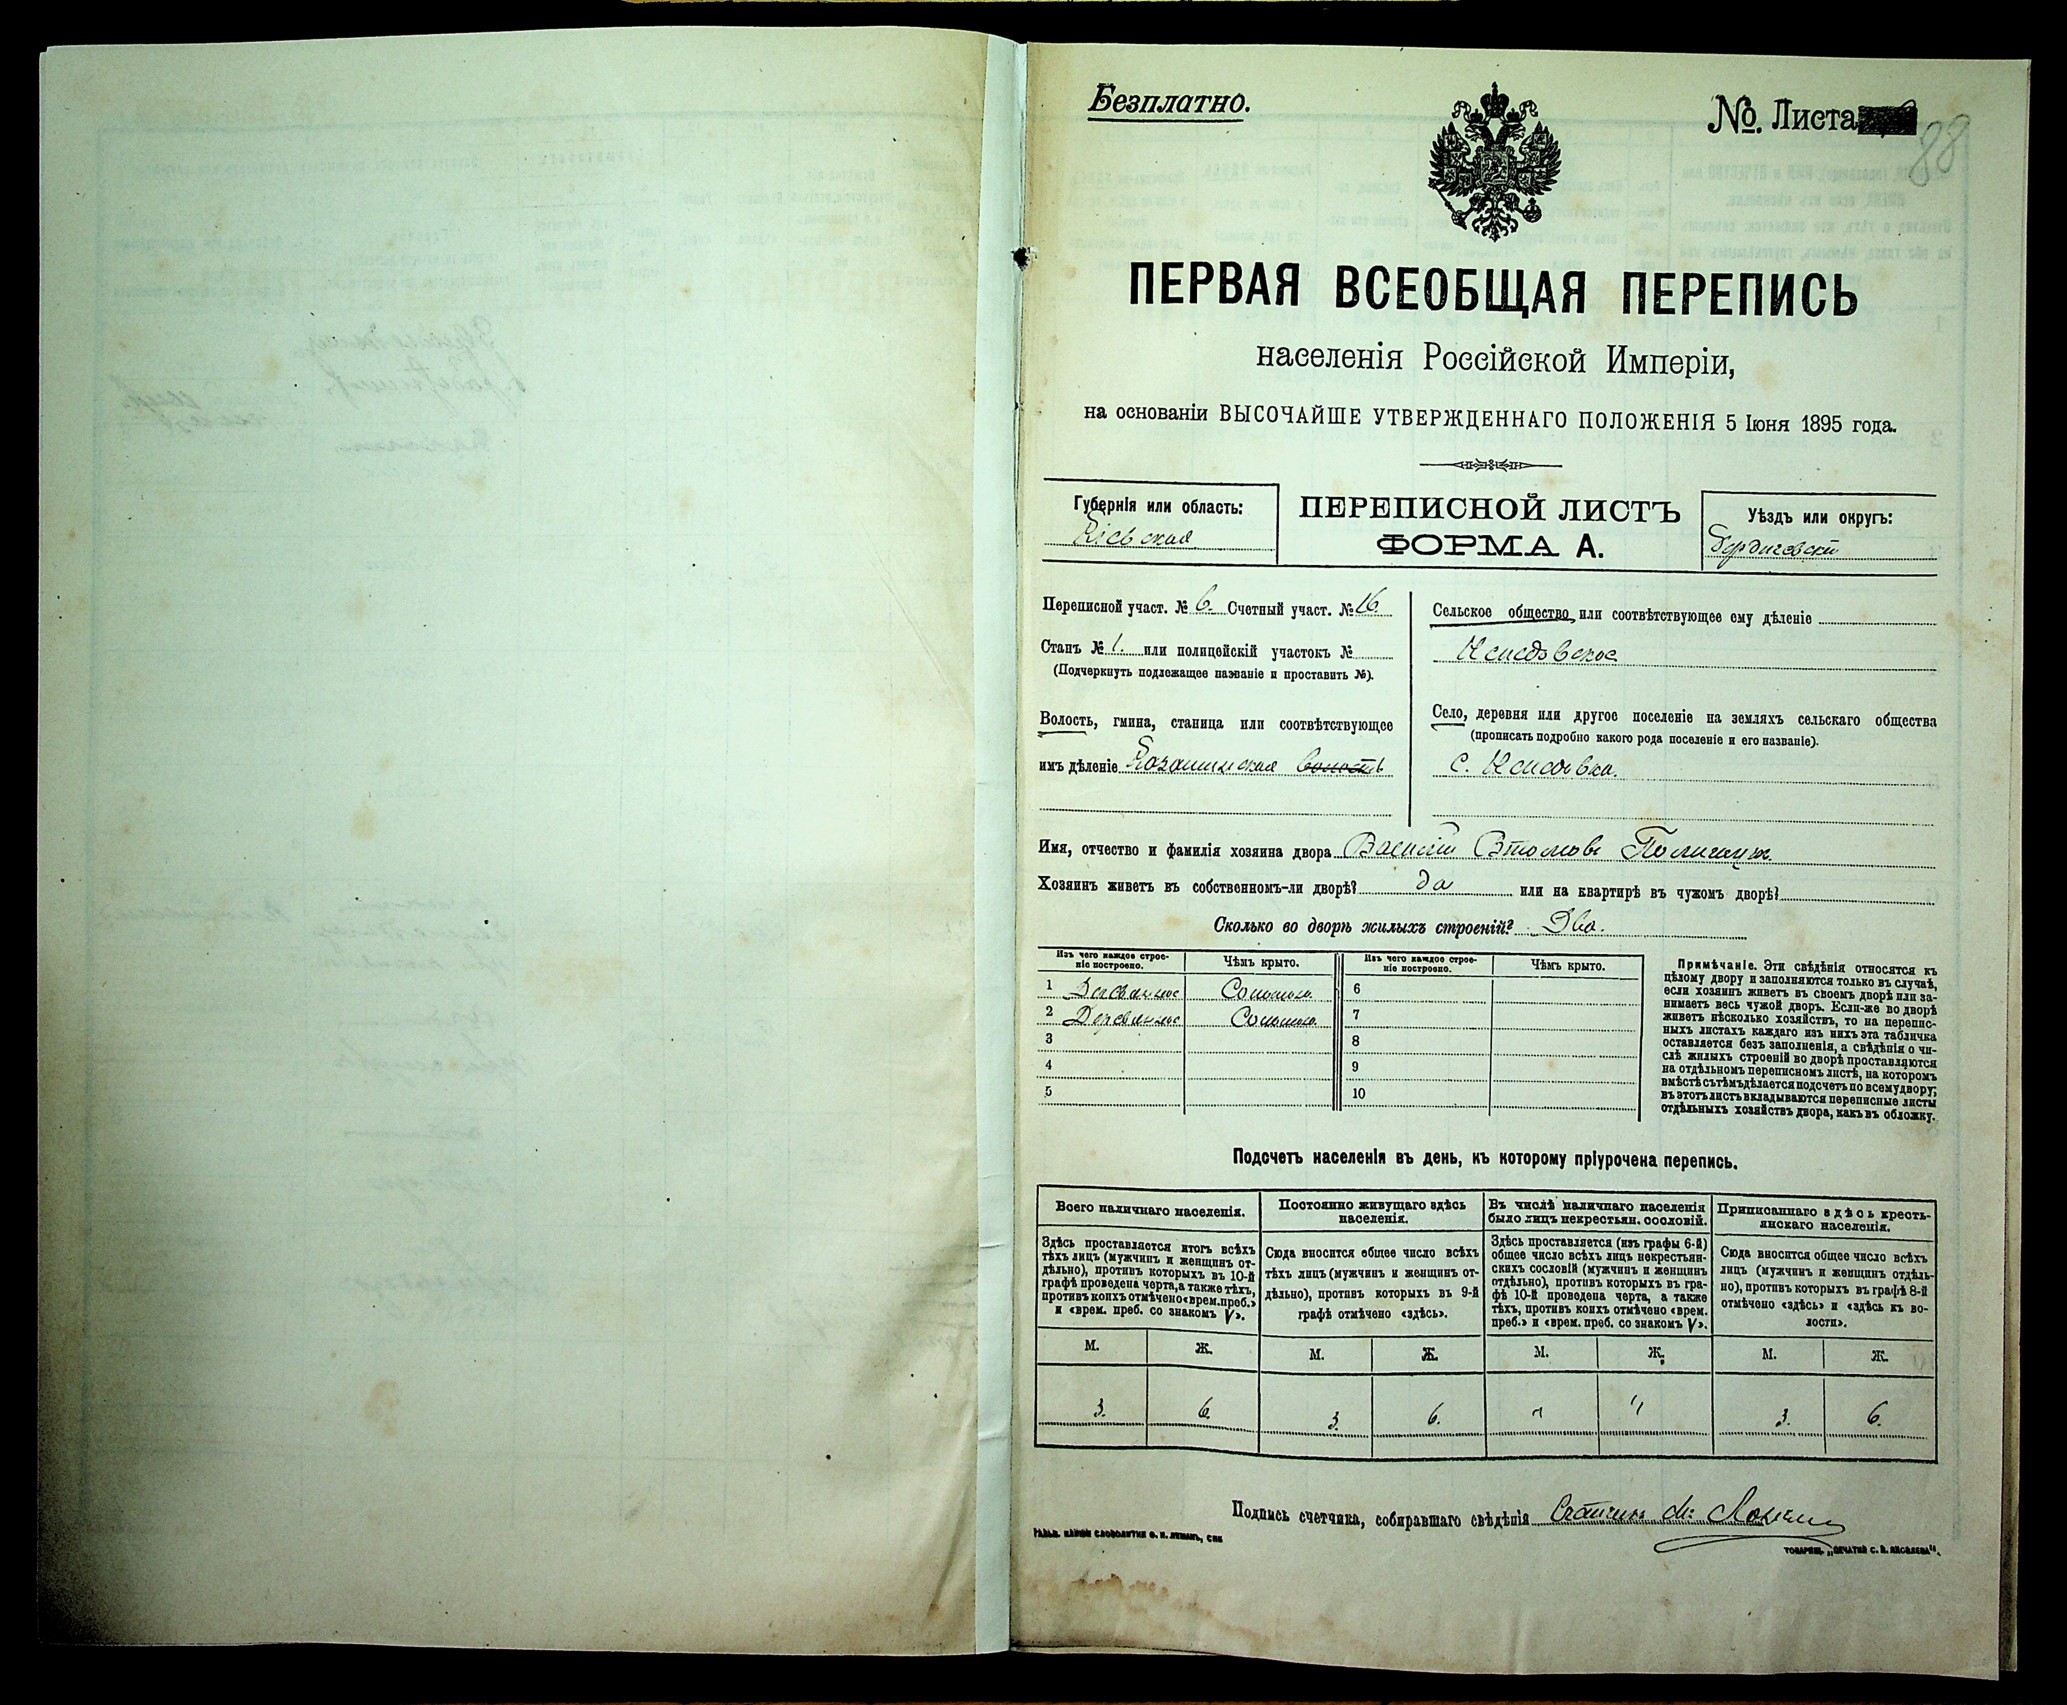 Безплатно.
№ Листа
88
ПЕРВАЯ ВСЕОБЩАЯ ПЕРЕПИСЬ
населенія Россійской Имперіи,
на основаніи ВЫСОЧАЙШЕ УТВЕРЖДЕННАГО ПОЛОЖЕНІЯ 5 Іюня 1895 года.
Губернія или область:
Кіевская
ПЕРЕПИСНОЙ ЛИСТЪ
ФОРМА А.
Уѣздъ или округъ:
Бердичевскій
Переписной участ. № 6. Счетный участ. № 16
Станъ № 1. или полицейскій участокъ №
(Подчеркнуть подлежащее названіе и проставить №).
Волость, гмина, станица или соотвѣтствующее
имъ дѣленіе волость
Сельское общество, или соотвѣтствующее ему дѣленіе
Село, деревня или другое поселеніе на земляхъ сельскаго общества
(прописать подробно какого рода поселеніе и его названіе).
с.
Имя, отчество и фамилія хозяина двора Василій
Хозяинъ живетъ въ собственномъ-ли дворѣ? да или на квартирѣ въ чужомъ дворѣ?
Сколько во дворѣ жилыхъ строеній? Два.
Изъ чего каждое строе-
ніе построено.
Чѣмъ крыто.
Изъ чего каждое строе-
ніе построено.
Чѣмъ крыто.
1 Деревянное Соломою 6
2 Деревянное Соломою 7
3 8
4 9
5 10
Примѣчаніе. Эти свѣдѣнія относятся къ
цѣлому двору и заполняются только въ случаѣ,
если хозяинъ живетъ въ своемъ дворѣ или за-
нимаетъ весь чужой дворъ. Если-же во дворѣ
живетъ нѣсколько хозяйствъ, то на перепис-
ныхъ листахъ каждаго изъ нихъ эта табличка
оставляется безъ заполненія, а свѣдѣнія о чи-
слѣ жилыхъ строеній во дворѣ проставляются
на отдѣльномъ переписномъ листѣ, на которомъ
вмѣстѣ съ тѣмъ дѣлается подсчетъ по всему двору;
въ этотъ листъ вкладываются переписные листы
отдѣльныхъ хозяйствъ двора, какъ въ обложку.
Подсчетъ населенія въ день, къ которому пріурочена перепись.
Всего наличнаго населенія.
Здѣсь проставляется итогъ всѣхъ
тѣхъ лицъ (мужчинъ и женщинъ от-
дѣльно), противъ которыхъ въ 10-й
графѣ проведена черта, а также тѣхъ,
противъ коихъ отмѣчено «врем. преб.»
и «врем. преб. со знакомъ V».
Постоянно живущаго здѣсь
населенія.
Сюда вносится общее число всѣхъ
тѣхъ лицъ (мужчинъ и женщинъ от-
дѣльно), противъ которыхъ въ 9-й
графѣ отмѣчено «здѣсь».
Въ числѣ наличнаго населенія
было лицъ некрестьян. сословій.
Здѣсь проставляется (изъ графы 6-й)
общее число всѣхъ лицъ некрестьян-
скихъ сословій (мужчинъ и женщинъ
отдѣльно), противъ которыхъ въ гра-
фѣ 10-й проведена черта, а также
тѣхъ, противъ коихъ отмѣчено «врем.
преб.» и «врем. преб. со знакомъ V».
Приписаннаго здѣсь кресть-
янскаго населенія.
Сюда вносится общее число всѣхъ
лицъ (мужчинъ и женщинъ отдѣль-
но), противъ которыхъ въ графѣ 8-й
отмѣчено «здѣсь» и «здѣсь къ во-
лости».
М. Ж. М. Ж. М. Ж. М. Ж.
3. 6. 3. 6. " " 3. 6.
Подпись счетчика, собиравшаго свѣдѣнія
ТОВАРИЩ. „ПЕЧАТНИ С. П. ЯКОВЛЕВА".